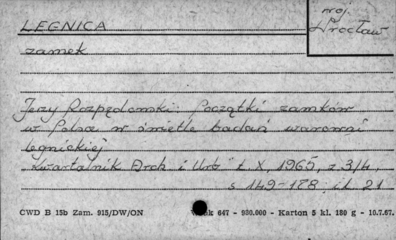 LEGNICA
woj.
Wrocław
zamek
Jerzy Rozpędowski: Początki zamków
w Polsce w świetle badań warowni
legnickiej
Kwartalnik Arch i Urb t. X, 1965, z. 3/4
s 149-178, il. 21
CWD B 15b Zam. 915/DW/ON 647 - 980.000 - Karton 5 kl. 180 g - 10.7.67.